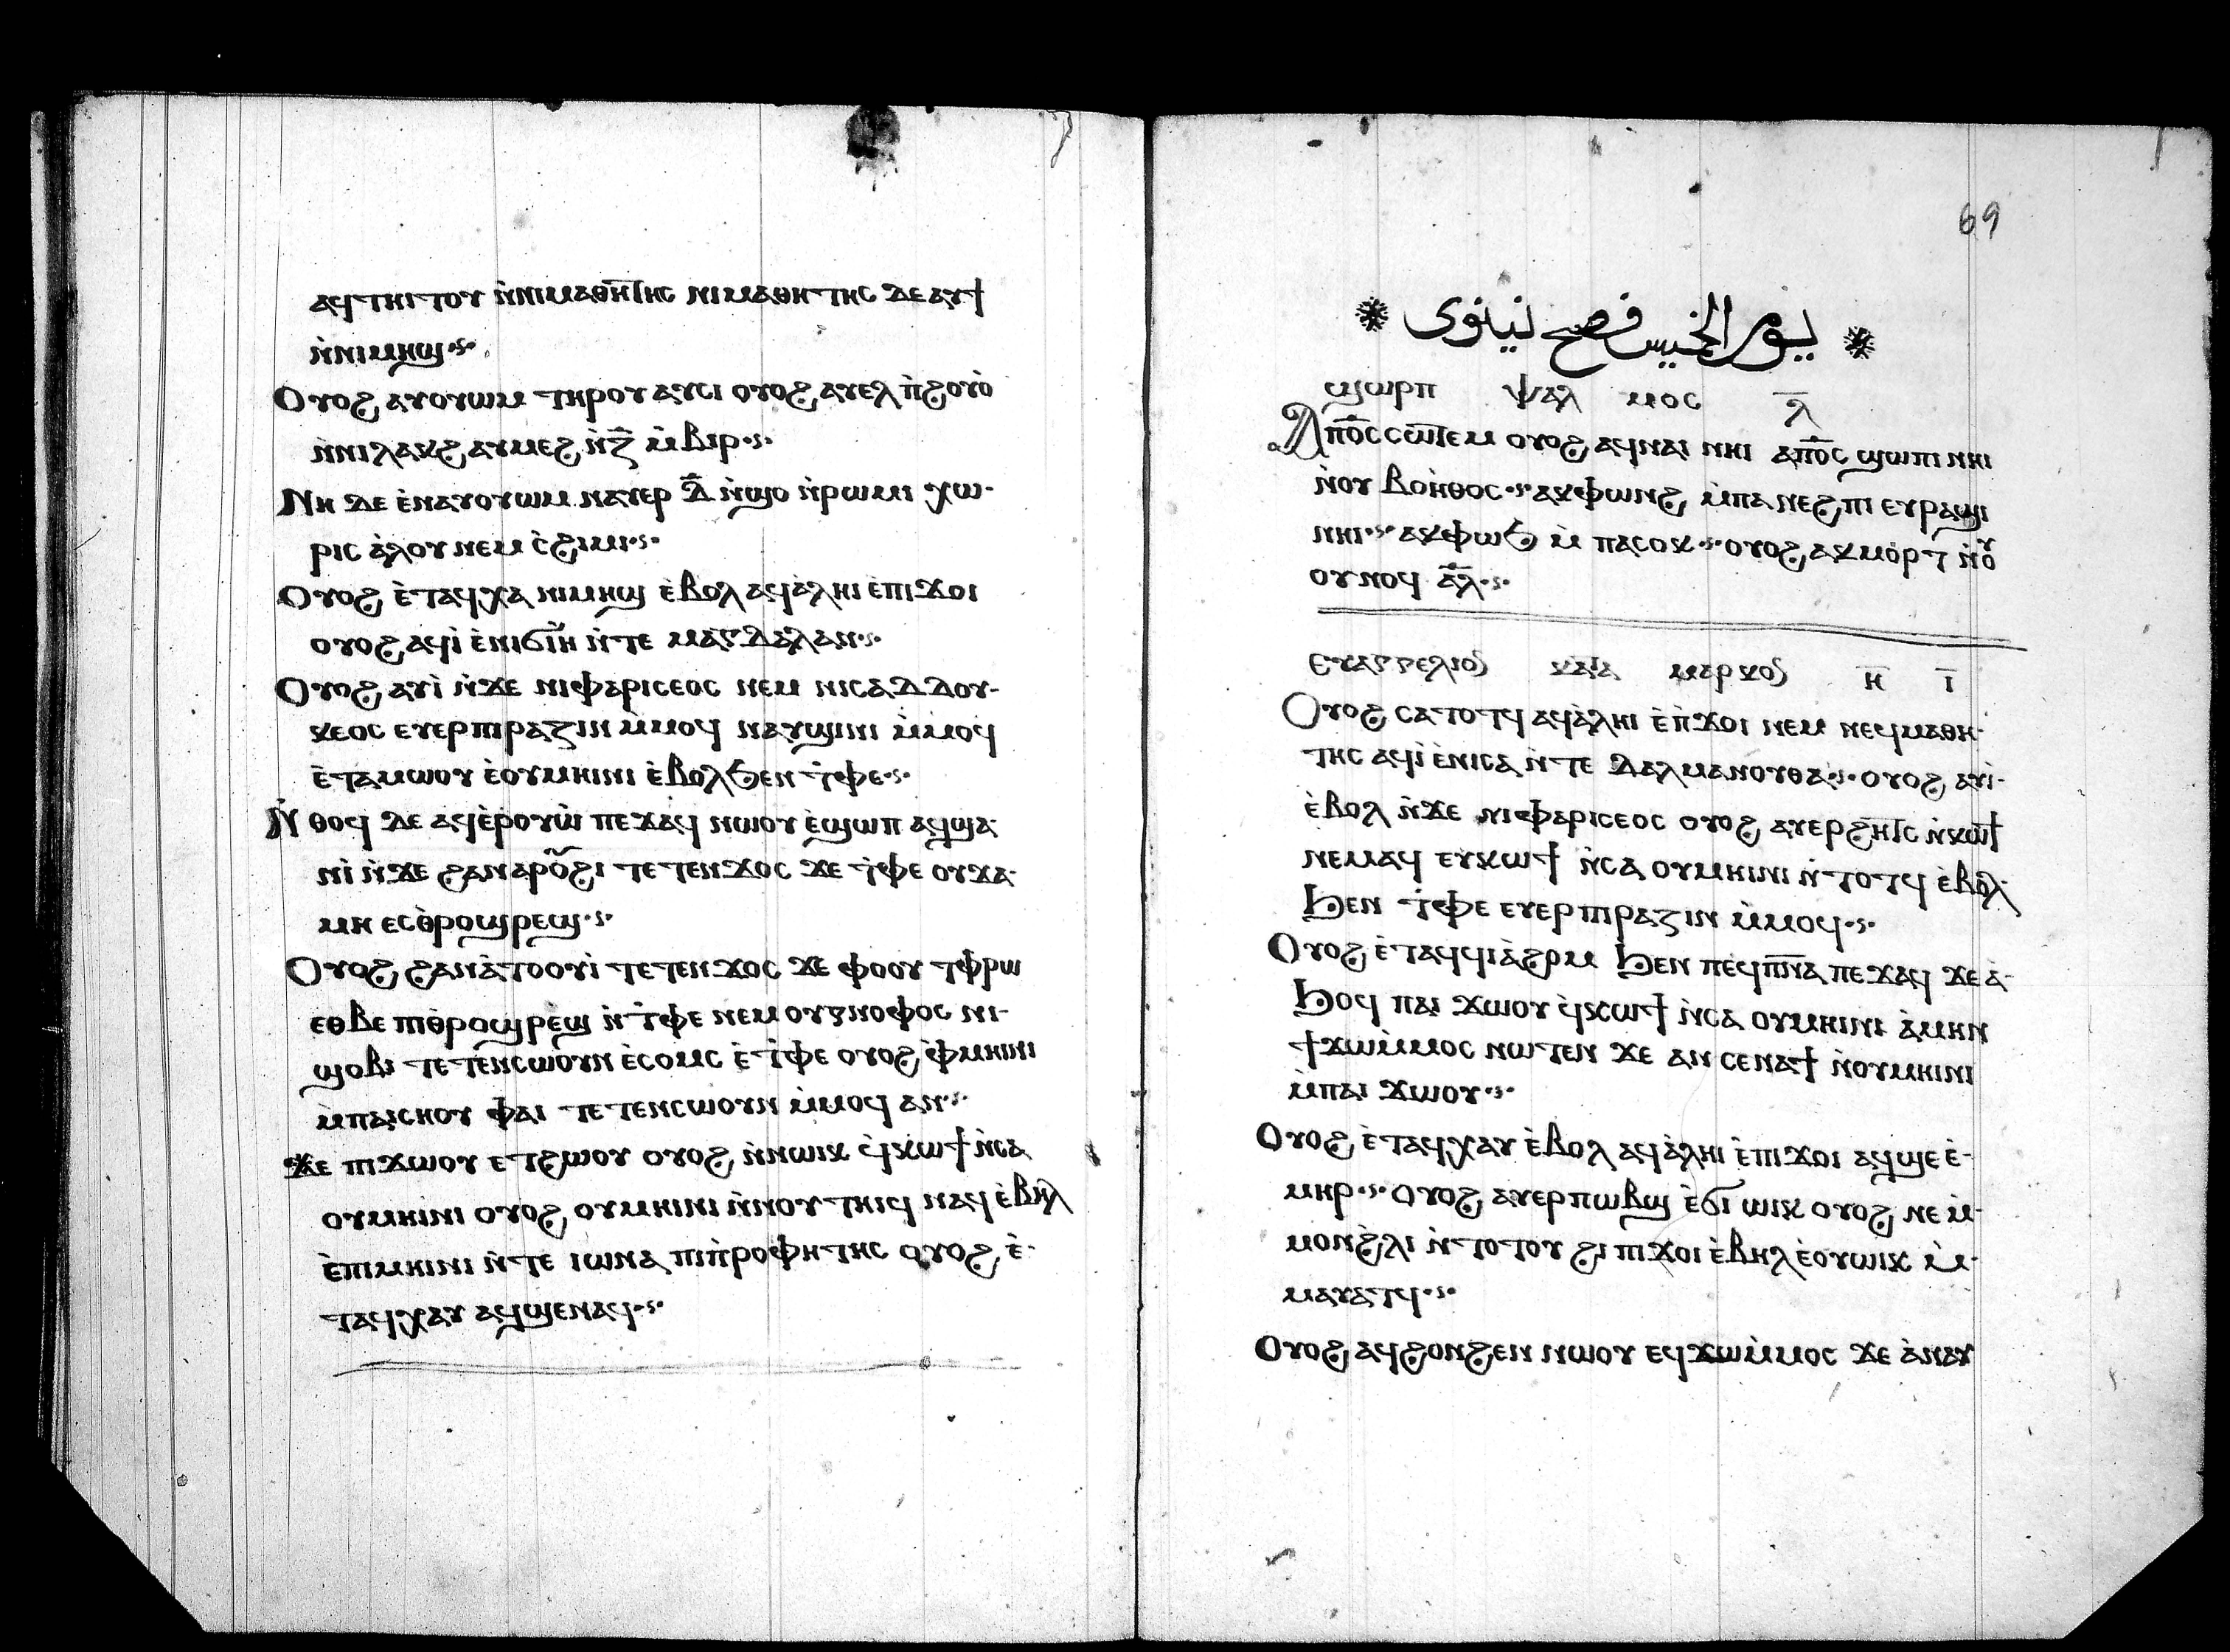 ⲁϥⲧⲏⲓⲧⲟⲩ ⲛ̀ⲛⲓⲙⲁⲑⲏⲧⲏⲥ ⲛⲓⲙⲁⲑⲏⲧⲏⲥ ⲇⲉ ⲁⲩϯ
ⲛ̀ⲛⲓⲙⲏϣ
Ⲟⲩⲟϩ ⲁⲩⲟⲩⲱⲙ ⲧⲏⲣⲟⲩ ⲁⲩⲥⲓ ⲟⲩⲟϩ ⲁⲩⲉⲗ ⲡ̀ϩⲟⲩⲟ̀
ⲛ̀ⲛⲓⲗⲁⲕϩ ⲁⲩⲙⲉϩ ⲛ̀ⲍ̅ ⲙ̀ⲃⲓⲣ
Ⲛⲏ ⲇⲉ ⲉ̀ⲛⲁⲩⲟⲩⲱⲙ ⲛⲁⲩⲉⲣ ⲇ̅ ⲛ̀ϣⲟ ⲛ̀ⲣⲱⲙⲓ ⲭⲱ-
ⲣⲓⲥ ⲁ̀ⲗⲟⲩ ⲛⲉⲙ ⲥ̀ϩⲓⲙⲓ
Ⲟⲩⲟϩ ⲉ̀ⲧⲁϥⲭⲁ ⲛⲓⲙⲏϣ ⲉ̀ⲃⲟⲗ ⲁϥⲁ̀ⲗⲏⲓ ⲉ̀ⲡⲓϫⲟⲓ
ⲟⲩⲟϩ ⲁϥⲓ̀ ⲉ̀ⲛⲓϭⲓⲏ ⲛ̀ⲧⲉ ⲙⲁⲅⲇⲁⲗⲁⲛ
Ⲟⲩⲟϩ ⲁⲩⲓ̀ ⲛ̀ϫⲉ ⲛⲓⲫⲁⲣⲓⲥⲉⲟⲥ ⲛⲉⲙ ⲛⲓⲥⲁⲇⲇⲟⲩ-
ⲕⲉⲟⲥ ⲉⲩⲉⲣⲡⲓⲣⲁⲍⲓⲛ ⲙ̀ⲙⲟϥ ⲛⲁⲩϣⲓⲛⲓ ⲙ̀ⲙⲟϥ
ⲉ̀ⲧⲁⲙⲱⲟⲩ ⲉ̀ⲟⲩⲙⲏⲓⲛⲓ ⲉ̀ⲃⲟⲗϧⲉⲛ ⲧ̀ⲫⲉ
Ⲛ̀ⲑⲟϥ ⲇⲉ ⲁϥⲉ̀ⲣⲟⲩⲱ̀ ⲡⲉϫⲁϥ ⲛⲱⲟⲩ ⲉ̀ϣⲱⲡ ⲁϥϣⲁ-
ⲛⲓ̀ ⲛ̀ϫⲉ ϩⲁⲛⲁⲣⲟⲩϩⲓ ⲧⲉⲧⲉⲛϫⲟⲥ ϫⲉ ⲧ̀ⲫⲉ ⲟⲩⲭⲁ-
ⲙⲏ ⲉⲥⲑ̀ⲣⲟϣⲣⲉϣ
Ⲟⲩⲟϩ ϩⲁⲛⲁ̀ⲧⲟⲟⲩⲓ̀ ⲧⲉⲧⲉⲛϫⲟⲥ ϫⲉ ⲫⲟⲟⲩ ⲧⲫ̀ⲣⲱ
ⲉⲑⲃⲉ ⲡⲓⲑ̀ⲣⲟϣⲣⲉϣ ⲛ̀ⲧ̀ⲫⲉ ⲛⲉⲙ ⲟⲩⲅⲛⲟⲫⲟⲥ ⲛⲓ-
ϣⲟⲃⲓ ⲧⲉⲧⲉⲛⲥⲱⲟⲩⲛ ⲉ̀ⲥⲟⲙⲥ ⲉ̀ⲧ̀ⲫⲉ ⲟⲩⲟϩ ⲉ̀ⲫⲙⲏⲓⲛⲓ
ⲙ̀ⲡⲁⲓⲥⲏⲟⲩ ⲫⲁⲓ ⲧⲉⲧⲉⲛⲥⲱⲟⲩⲛ ⲙ̀ⲙⲟϥ ⲁⲛ
Ϫⲉ ⲡⲓϫⲱⲟⲩ ⲉⲧϩⲱⲟⲩ ⲟⲩⲟϩ ⲛ̀ⲛⲱⲓⲕ ϥ̀ⲕⲱϯ ⲛ̀ⲥⲁ
ⲟⲩⲙⲏⲓⲛⲓ ⲟⲩⲟϩ ⲟⲩⲙⲏⲓⲛⲓ ⲛ̀ⲛⲟⲩⲧⲏⲓϥ ⲛⲁϥ ⲉ̀ⲃⲏⲗ
ⲉ̀ⲡⲓⲙⲏⲓⲛⲓ ⲛ̀ⲧⲉ ⲓⲱⲛⲁ ⲡⲓⲡ̀ⲣⲟⲫⲏⲧⲏⲥ ⲟⲩⲟϩ ⲉ̀-
ⲧⲁϥⲭⲁⲩ ⲁϥϣⲉⲛⲁϥ
69
يوم الخميس فصح نينوى
ϣⲱⲣⲡ ⲯⲁⲗⲙⲟⲥ
Ⲁⲡⲟ̅ⲥ̅ ⲥⲱⲧⲉⲙ ⲟⲩⲟϩ ⲁϥⲛⲁⲓ ⲛⲏⲓ ⲁⲡⲟ̅ⲥ̅ ϣⲱⲡⲓ ⲛⲏⲓ
ⲛ̀ⲟⲩⲃⲟⲏ̀ⲑⲟⲥ ⲁⲕⲫⲱⲛϩ ⲙ̀ⲡⲁⲛⲉϩⲡⲓ ⲉⲩⲣⲁϣⲓ
ⲛⲏⲓ ⲁⲕⲫⲱϧ ⲙ̀ⲡⲁⲥⲟⲕ ⲟⲩⲟϩ ⲁⲕⲙⲟⲣⲧ ⲛ̀ⲟⲩ
ⲟⲩⲛⲟϥ ⲁⲗ
Ⲉⲩⲁⲅⲅⲉⲗⲓⲟⲛ ⲕⲁⲧⲁ ⲙⲁⲣⲕⲟⲛ ⲏ̅ ⲓ̅
Ⲟⲩⲟϩ ⲥⲁⲧⲟⲧϥ ⲁϥⲁ̀ⲗⲏⲓ ⲉ̀ⲡ̀ϫⲟⲓ ⲛⲉⲙ ⲛⲉϥⲙⲁⲑⲏ-
ⲧⲏⲥ ⲁϥⲓ̀ ⲉ̀ⲛⲓⲥⲁ ⲛ̀ⲧⲉ ⲇⲁⲗⲙⲁⲛⲟⲩⲑⲁ ⲟⲩⲟϩ ⲁⲩⲓ̀-
ⲉ̀ⲃⲟⲗ ⲛ̀ϫⲉ ⲛⲓⲫⲁⲣⲓⲥⲉⲟⲥ ⲟⲩⲟϩ ⲁⲩⲉⲣϩⲏⲧⲥ ⲛ̀ⲕⲱϯ
ⲛⲉⲙⲁϥ ⲉⲩⲕⲱϯ ⲛ̀ⲥⲁ ⲟⲩⲙⲏⲓⲛⲓ ⲛ̀ⲧⲟⲧϥ ⲉ̀ⲃⲟⲗ
ϧⲉⲛ ⲧ̀ⲫⲉ ⲉⲩⲉⲣⲡⲓⲣⲁⲍⲓⲛ ⲙ̀ⲙⲟϥ
Ⲟⲩⲟϩ ⲉ̀ⲧⲁϥϥⲓⲁ̀ϩⲣⲙ ϧⲉⲛ ⲡⲉϥⲡ̅ⲛ̅ⲁ̅ ⲡⲉϫⲁϥ ϫⲉ ⲁ̀-
ϧⲟϥ ⲡⲁⲓ ϫⲱⲟⲩ ϥ̀ⲕⲱϯ ⲛ̀ⲥⲁ ⲟⲩⲙⲏⲓⲛⲓ ⲁ̀ⲙⲏⲛ
ϯϫⲱⲙ̀ⲙⲟⲥ ⲛⲱⲧⲉⲛ ϫⲉ ⲁⲛ ⲥⲉⲛⲁϯ ⲛ̀ⲟⲩⲙⲏⲓⲛⲓ
ⲙ̀ⲡⲁⲓ ϫⲱⲟⲩ
Ⲟⲩⲟϩ ⲉ̀ⲧⲁϥⲭⲁⲩ ⲉ̀ⲃⲟⲗ ⲁϥⲁ̀ⲗⲏⲓ ⲉ̀ⲡⲓϫⲟⲓ ⲁϥϣⲉ ⲉ̀-
ⲙⲏⲣ ⲟⲩⲟϩ ⲁⲩⲉⲣⲡⲱⲃϣ ⲉ̀ϭⲓ ⲱⲓⲕ ⲟⲩⲟϩ ⲛⲉ ⲙ̀-
ⲙⲟⲛϩ̀ⲗⲓ ⲛ̀ⲧⲟⲧⲟⲩ ϩⲓ ⲡⲓϫⲟⲓ ⲉ̀ⲃⲏⲗ ⲉ̀ⲟⲩⲱⲓⲕ ⲙ̀-
ⲙⲁⲩⲁⲧϥ
Ⲟⲩⲟϩ ⲁϥϩⲟⲛϩⲉⲛ ⲛⲱⲟⲩ ⲉϥϫⲱⲙ̀ⲙⲟⲥ ϫⲉ ⲁ̀ⲛⲁⲩ